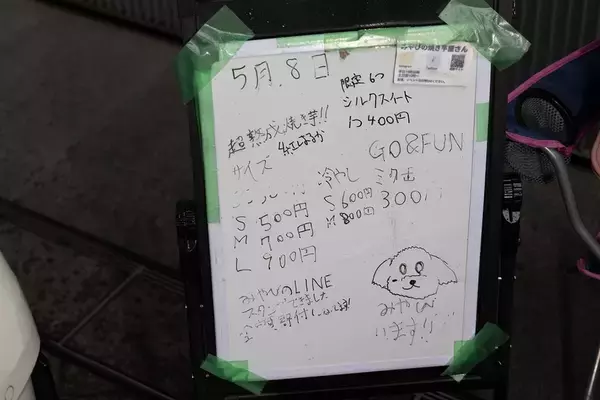 みやびの焼き芋屋さん
5月.8日
限定6つ
シルクスイート
1コ400円
超熟成焼き芋!!
紅はるか
サイズ
S 500円
M 700円
L 900円
冷やし
S 600円
M 800円
GO&FUN
ミク缶
300
みやびのLINE
スタンプできました
みやび
います!!